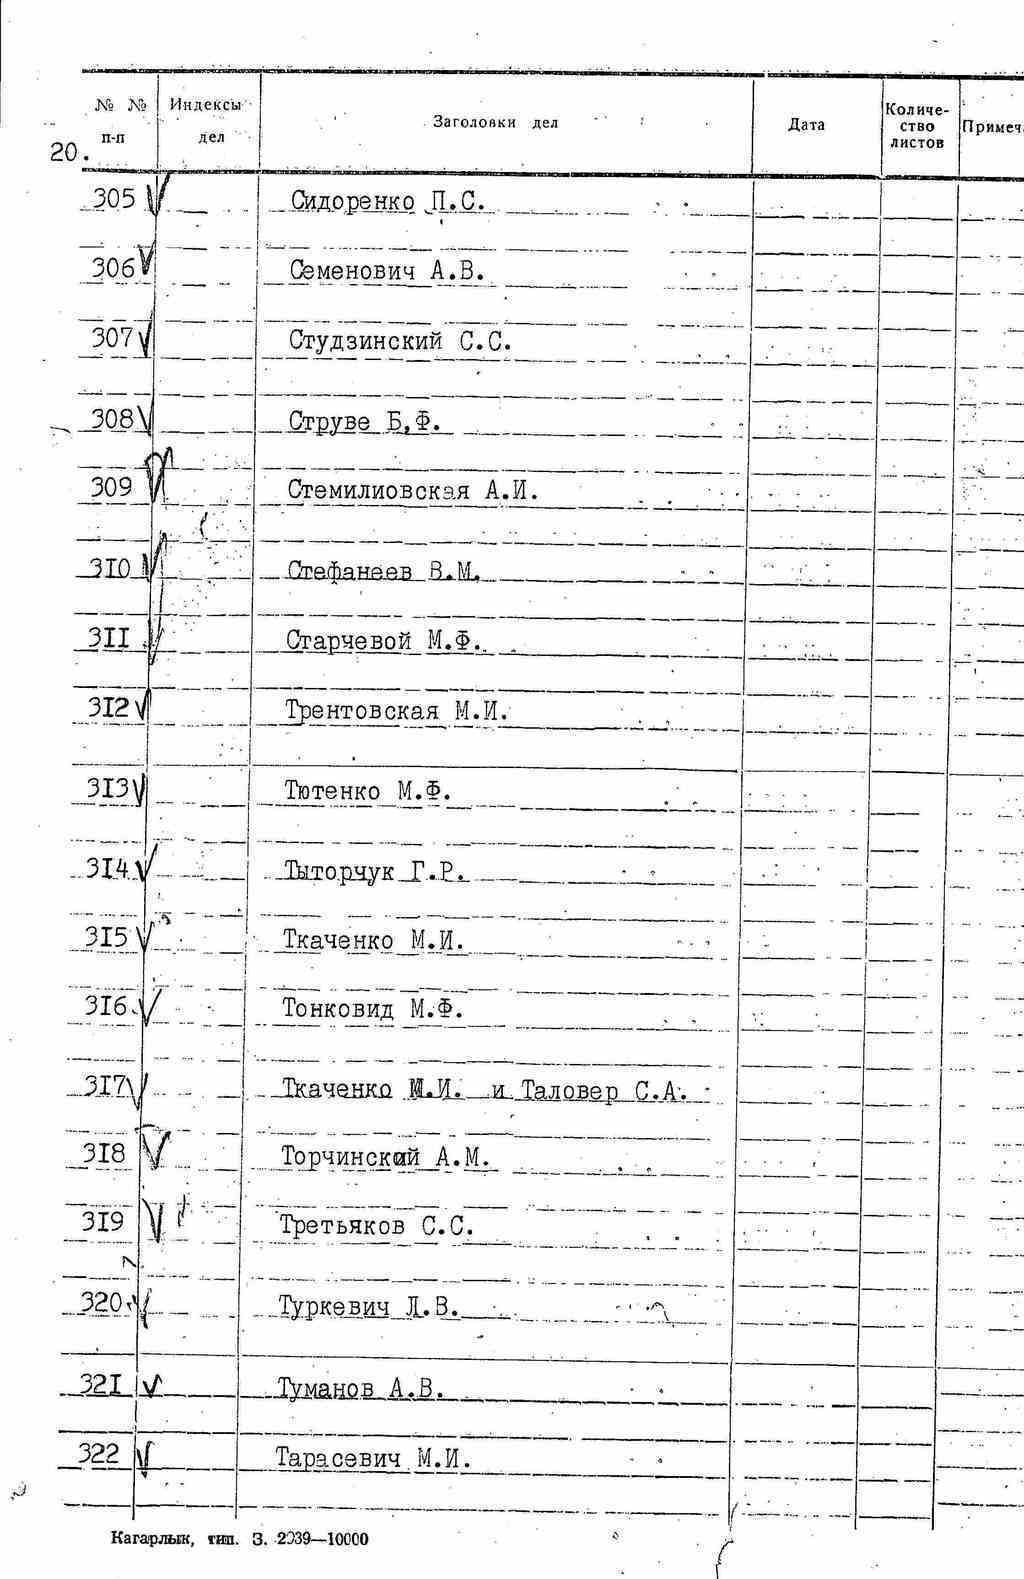 № № п-п | Индексы дел | Заголовки дел | Дата | Количество листов | Примеч.
20.
305 Сидоренко П.С.
306 Семенович А.В.
307 Студзинский С.С.
308 Струве Б.Ф.
309 Стемилиовская А.И.
310 Стефанеев В.М.
311 Старчевой М.Ф.
312 Трентовская М.И.
313 Тютенко М.Ф.
314 Тыторчук Г.Р.
315 Ткаченко М.И.
316 Тонковид М.Ф.
317 Ткаченко М.И. и Таловер С.А.
318 Торчинский А.М.
319 Третьяков С.С.
320 Туркевич Л.В.
321 Туманов А.В.
322 Тарасевич М.И.
Кагарлык, тип. З. 2039—10000